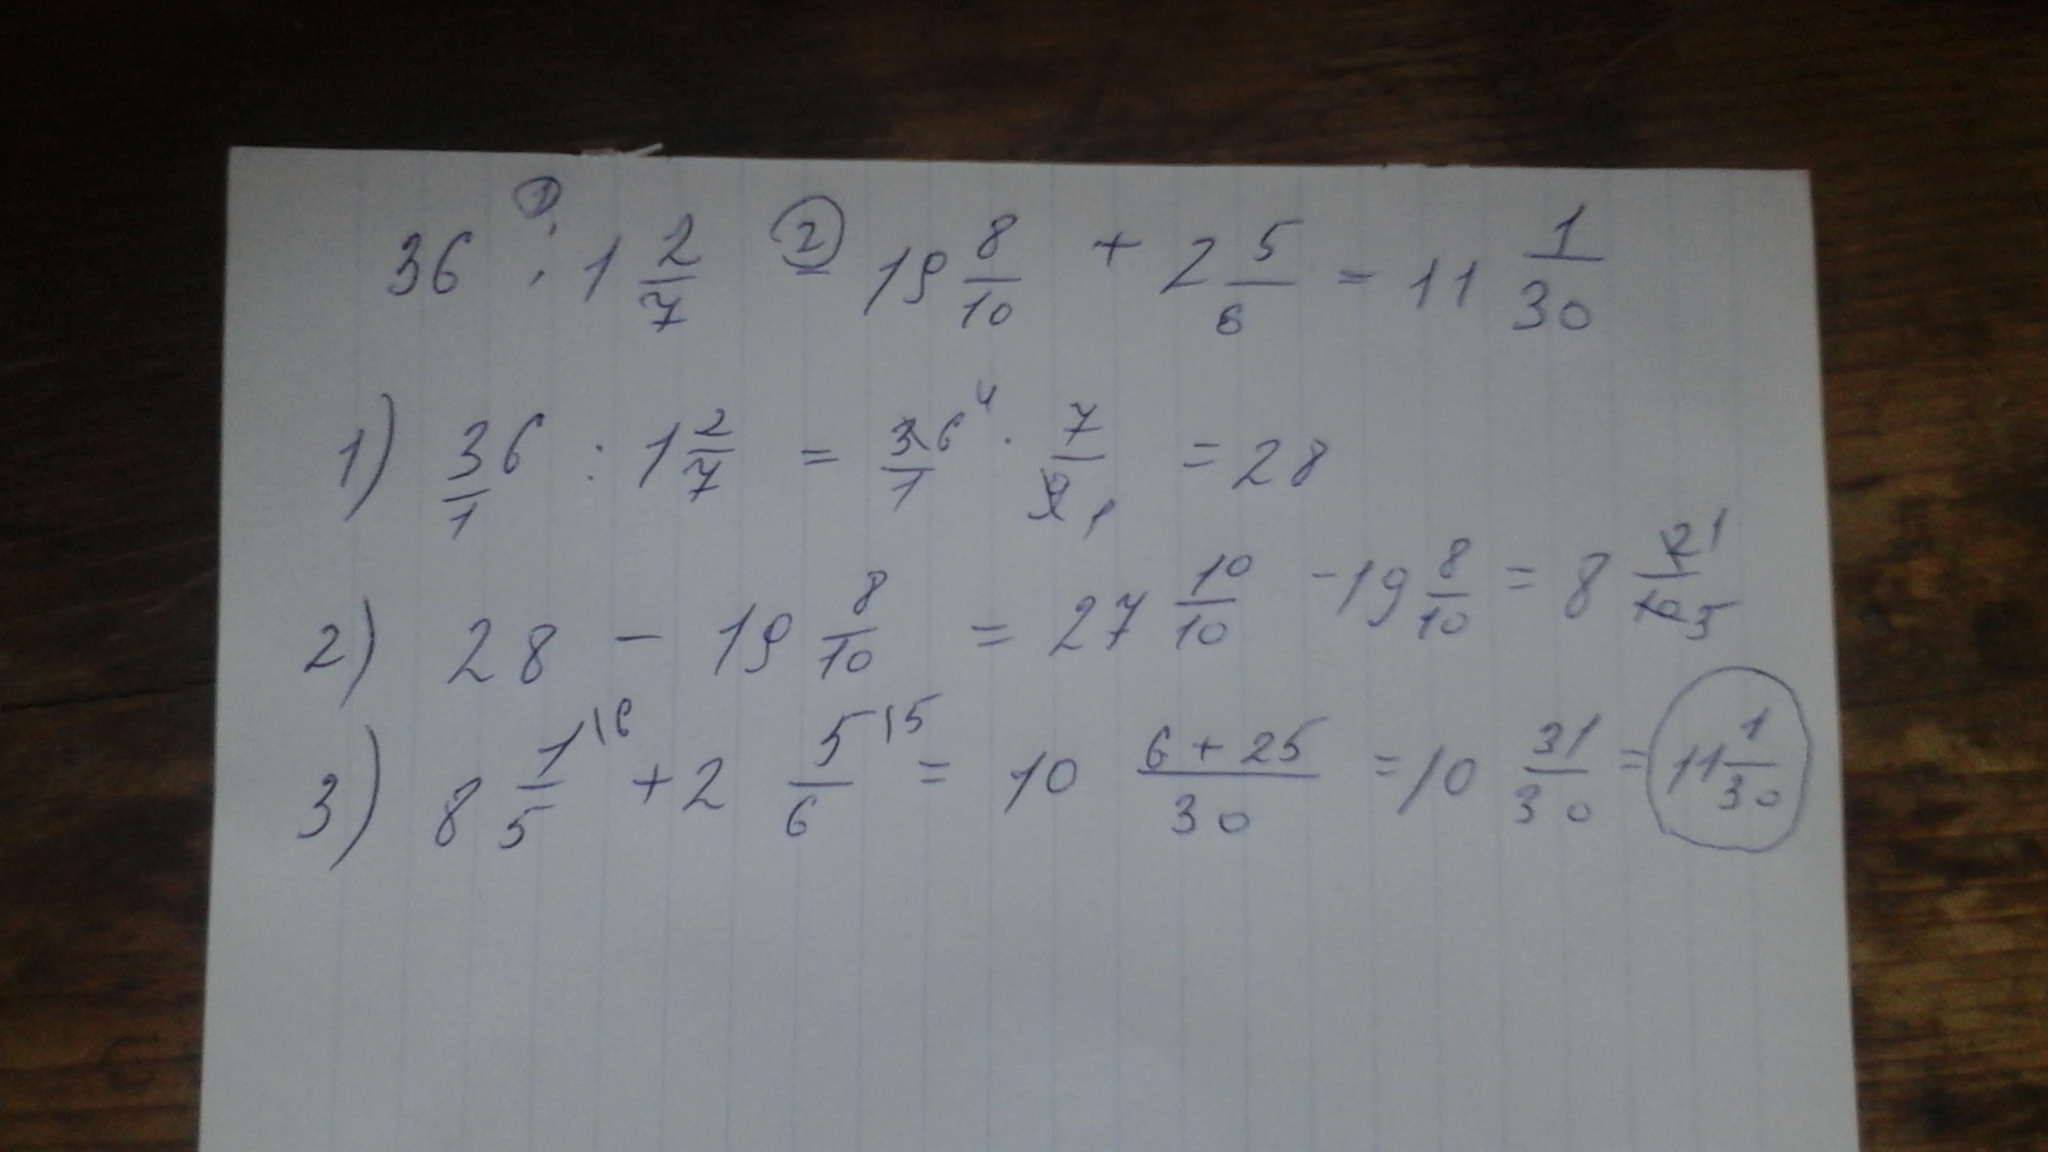 36 : 1 2/7 - 19 8/10 + 2 5/6 = 11 1/30
1) 36/1 : 1 2/7 = 36/1 · 7/9 = 28
2) 28 - 19 8/10 = 27 10/10 - 19 8/10 = 8 2/10
3) 8 1/5 + 2 5/6 = 10 (6 + 25)/30 = 10 31/30 = 11 1/30